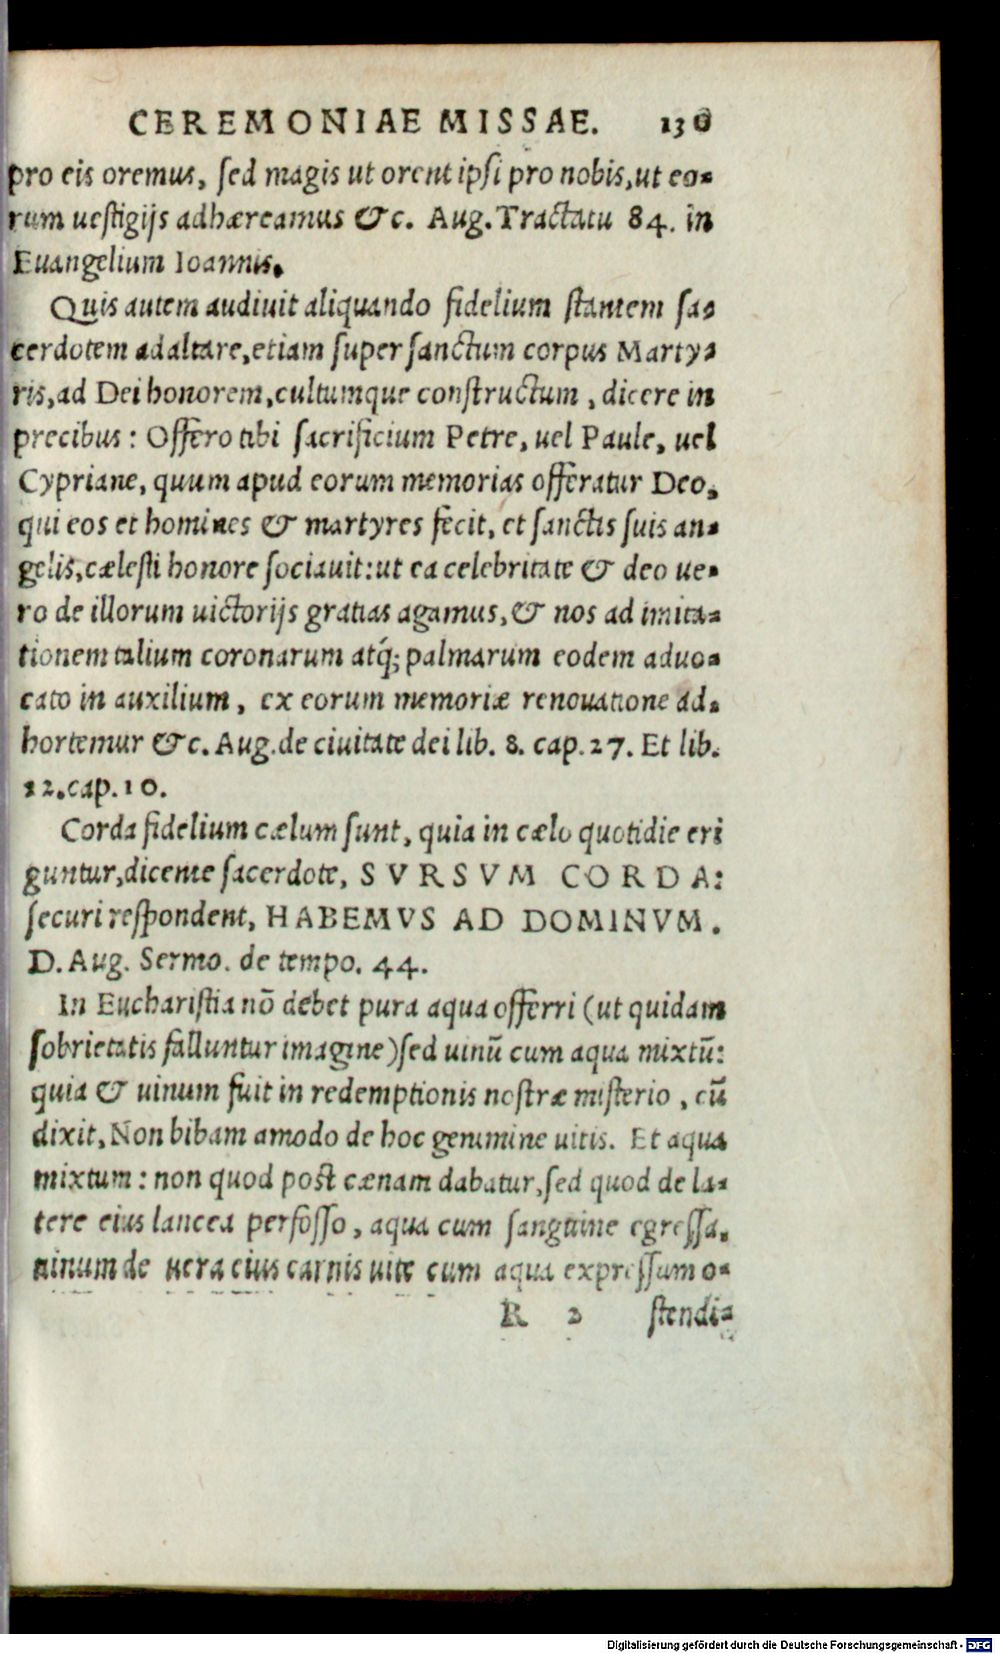 CEREMONIAE MISSAE. 130
pro eis oremus, sed magis ut orent ipsi pro nobis, ut eo-
rum uestigijs adhæreamus &c. Aug. Tractatu 84. in
Euangelium Ioannis.
Quis autem audiuit aliquando fidelium stantem sa-
cerdotem ad altare, etiam super sanctum corpus Marty-
ris, ad Dei honorem, cultumque constructum, dicere in
precibus: Offero tibi sacrificium Petre, uel Paule, uel
Cypriane, quum apud eorum memorias offeratur Deo,
qui eos et homines & martyres fecit, et sanctis suis an-
gelis, cælesti honore sociauit: ut ea celebritate & deo ue-
ro de illorum uictorijs gratias agamus, & nos ad imita-
tionem talium coronarum atq́; palmarum eodem aduo-
cato in auxilium, ex eorum memoriæ renouatione ad-
hortemur &c. Aug. de ciuitate dei lib. 8. cap. 27. Et lib.
12. cap. 10.
Corda fidelium cælum sunt, quia in cælo quotidie eri
guntur, dicente sacerdote, SVRSVM CORDA:
securi respondent, HABEMVS AD DOMINVM.
D. Aug. Sermo. de tempo. 44.
In Eucharistia nō debet pura aqua offerri (ut quidam
sobrietatis falluntur imagine) sed uinū cum aqua mixtū:
quia & uinum fuit in redemptionis nostræ misterio, cū
dixit, Non bibam amodo de hoc genimine uitis. Et aqua
mixtum: non quod post cænam dabatur, sed quod de la-
tere eius lancea perfosso, aqua cum sanguine egressa,
uinum de uera eius carnis uite cum aqua expressum o-
R 2 stendi-
Digitalisierung gefördert durch die Deutsche Forschungsgemeinschaft - DFG